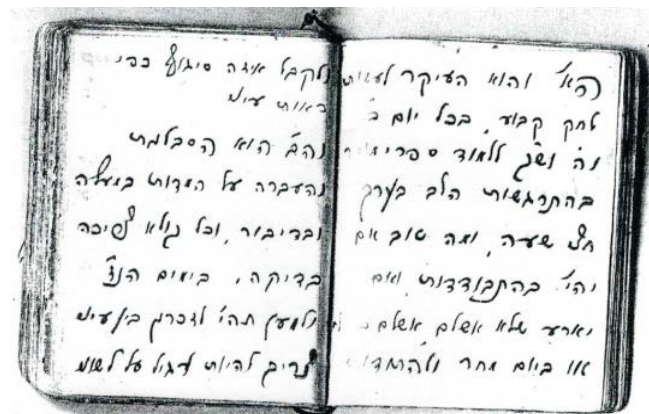 הא' והוא העיקר לעשות
לחק קבוע, בכל יום
ללמוד ספרי
בהתרגשות הלב בערך
חצי שעה, ומה טוב אם
יהי' בהתבודדות, ואם
יארע שלא אשלם אשלם
או ביום מחר
ולקבל איזה סיגוף כפי
ראות עיני
והב' הוא הסבלנות
והעברה על המדות במעשה
ובדיבור, וכל
בדיקה. בימים הנז'
ולמען תהי' לזכרון בין עיני
צריך להיות רגיל על לשוני